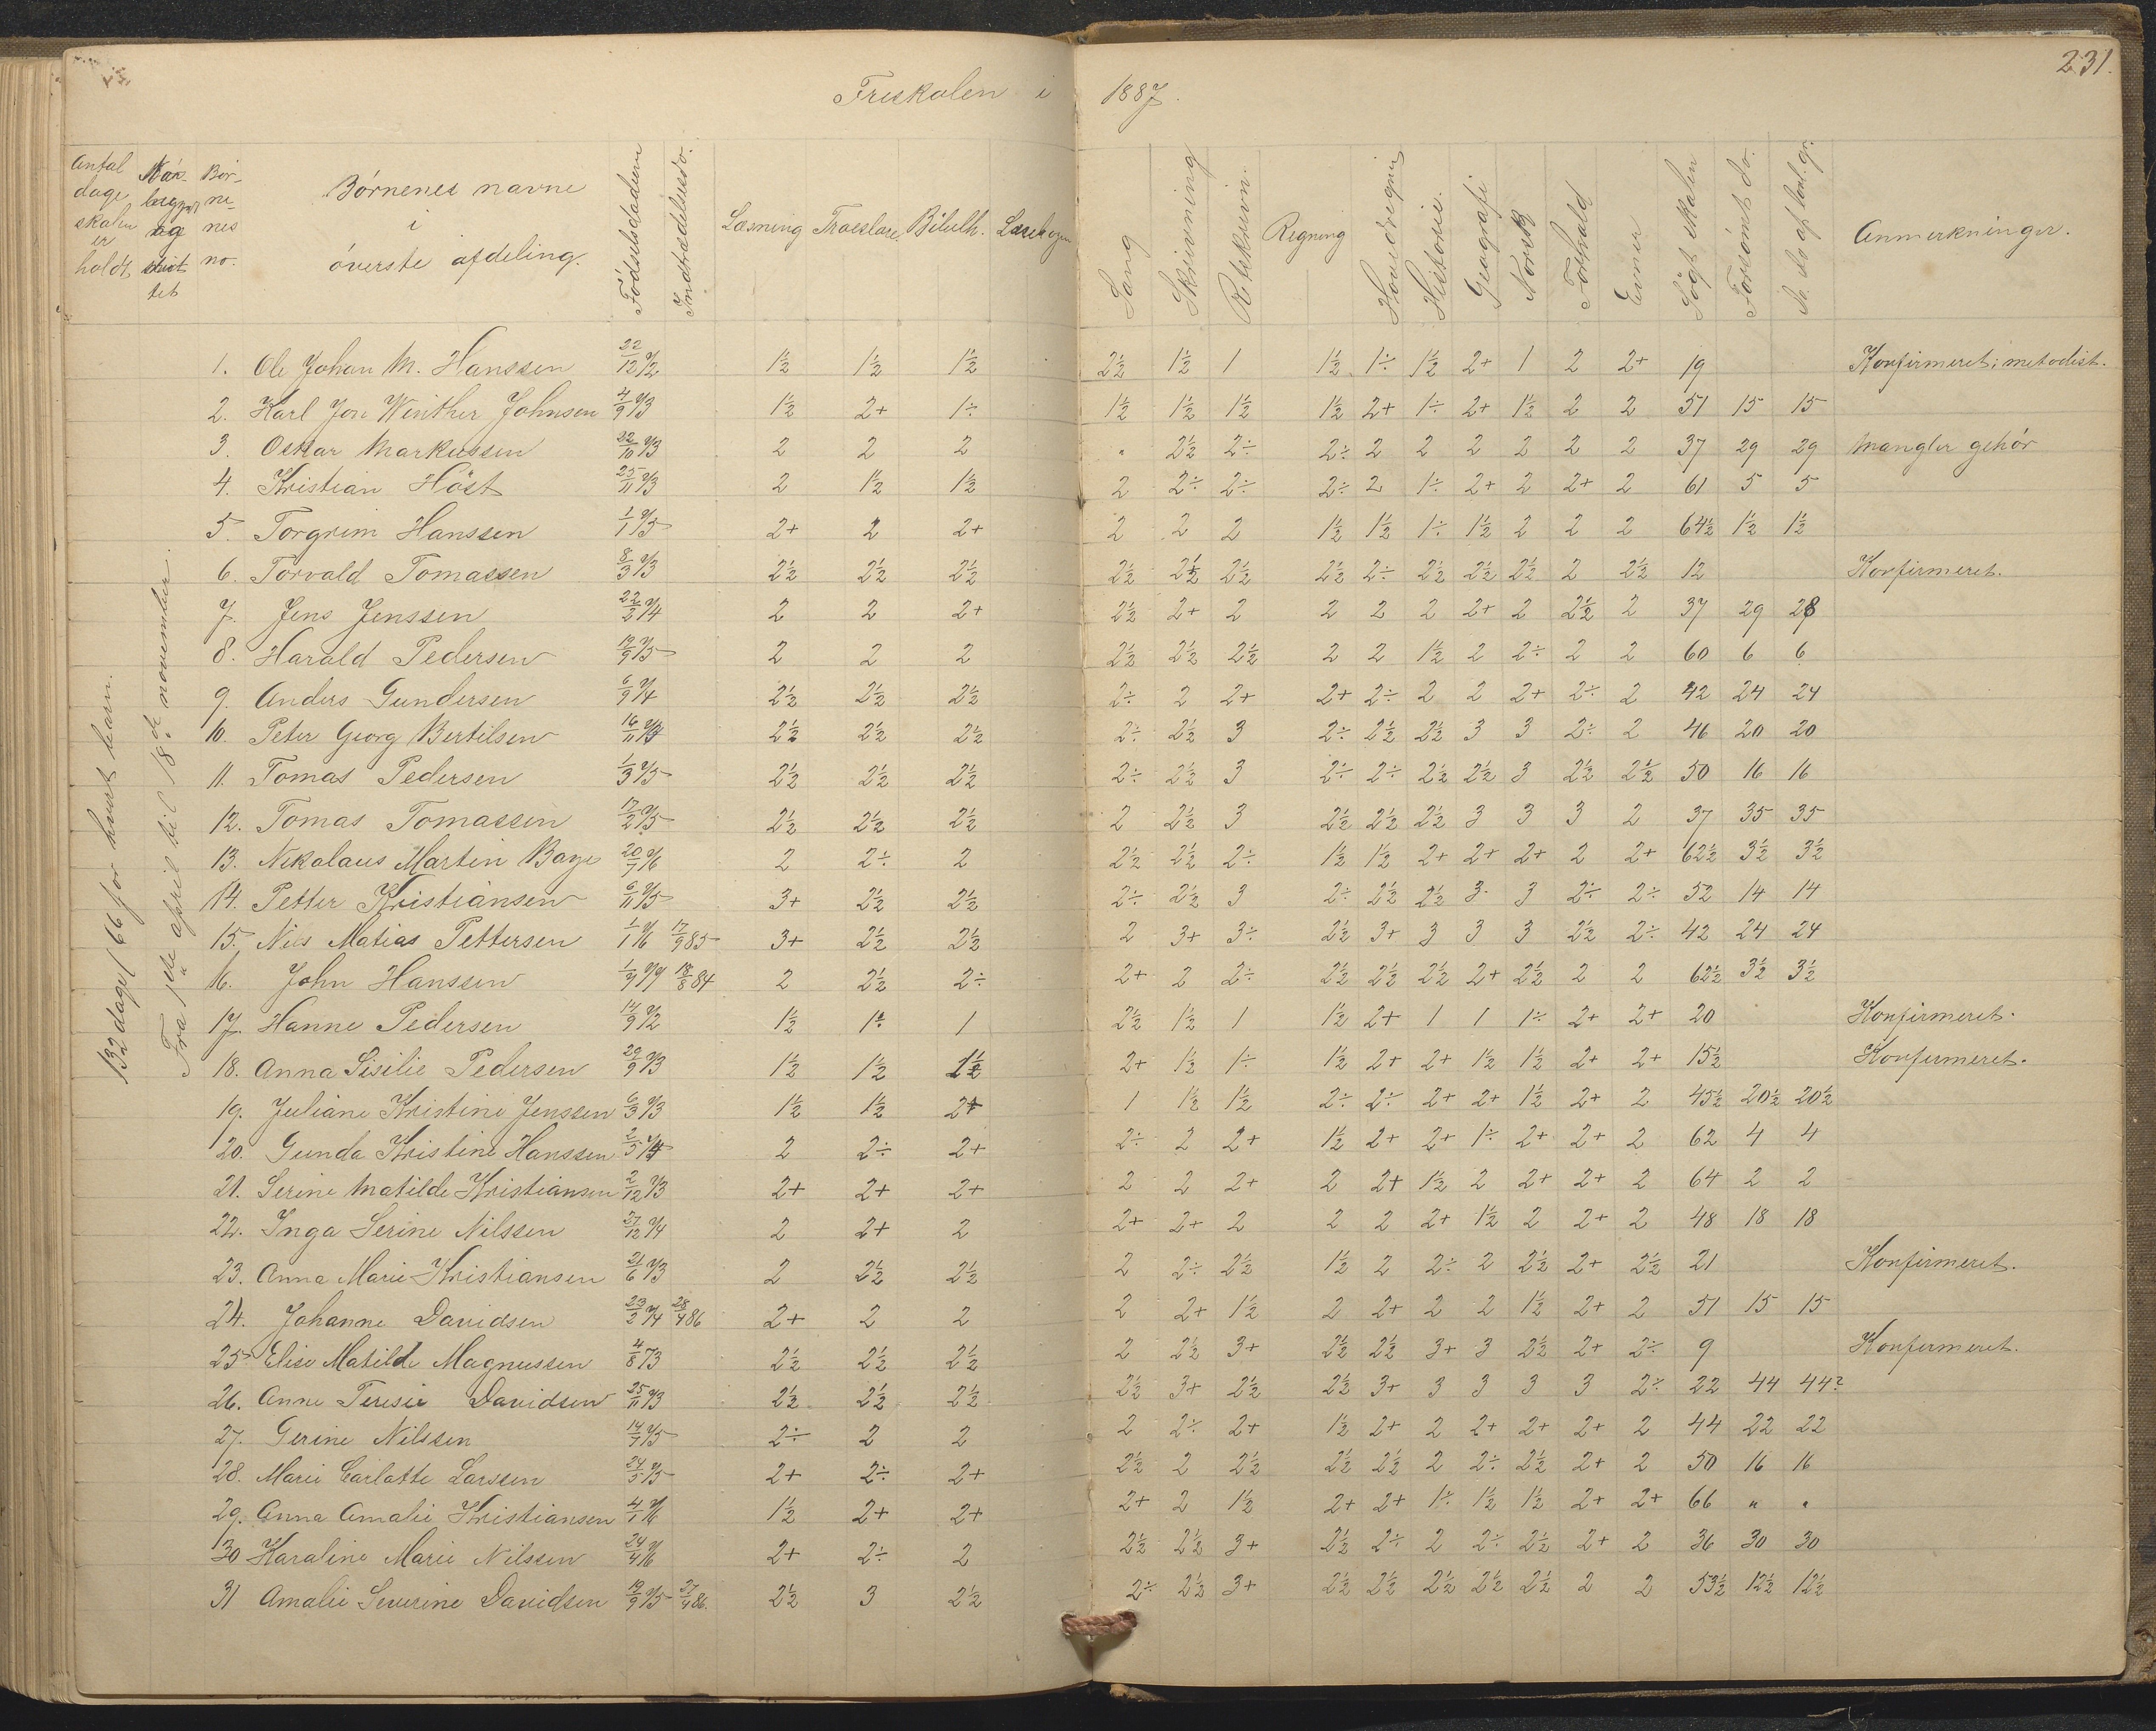 Friskolen i 1887.
231.
Antal dage skolen er holdt
Naar begynt og sluttet
Børnenes no.
Børnenes navne i øverste afdeling.
Födselsdadum
Indtrædelsesdo.
Læsning
Troeslære
Bibelh.
Sang
Skrivning
Retskrivn.
Regning
Hovedregning
Historie.
Geografi
Norsk
Forhold
Evner
Søgt skolen
Forsømt do.
Anmerkninger.
132 dage / 66 for hvert barn.
Fra 1ste april til 18de november.
1. Ole Johan M. Hanssen 22/12 72 1½ 1½ 1½ 2½ 1½ 1 1½ 1÷ 1½ 2+ 1 2 2+ 19 Konfirmeret; metodist.
2. Karl Jon Winther Johnsen 4/9 73 1½ 2+ 1÷ 1½ 1½ 1½ 1½ 2+ 1÷ 2+ 1½ 2 2 51 15 15
3. Oskar Markussen 22/10 73 2 2 2 " 2½ 2÷ 2÷ 2 2 2 2 2 2 37 29 29 Mangler gehør
4. Kristian Höst 25/11 73 2 1½ 1½ 2 2÷ 2÷ 2÷ 2 1÷ 2+ 2 2+ 2 61 5 5
5. Torgrim Hanssen 1/1 75 2+ 2 2+ 2 2 2 1½ 1½ 1÷ 1½ 2 2 2 64½ 1½ 1½
6. Torvald Tomassen 8/3 73 2½ 2½ 2½ 2½ 2½ 2½ 2½ 2÷ 2½ 2½ 2½ 2 2½ 12 Konfirmeret.
7. Jens Jenssen 22/2 74 2 2 2+ 2½ 2+ 2 2 2 2 2+ 2 2½ 2 37 29 28
8. Harald Pedersen 19/9 75 2 2 2 2½ 2½ 2½ 2 2 1½ 2 2÷ 2 2 60 6 6
9. Anders Gundersen 6/9 74 2½ 2½ 2½ 2÷ 2 2+ 2+ 2÷ 2 2 2+ 2÷ 2 42 24 24
10. Peter Georg Bertilsen 16/11 74 2½ 2½ 2½ 2÷ 2½ 3 2÷ 2½ 2½ 3 3 2÷ 2 46 20 20
11. Tomas Pedersen 1/3 75 2½ 2½ 2½ 2÷ 2½ 3 2÷ 2÷ 2½ 2½ 3 2½ 2½ 50 16 16
12. Tomas Tomassen 17/2 75 2½ 2½ 2½ 2 2½ 3 2½ 2½ 2½ 3 3 3 2 37 35 35
13. Nikolaus Martin Baye 20/7 76 2 2÷ 2 2½ 2½ 2÷ 1½ 1½ 2+ 2+ 2+ 2 2+ 62½ 3½ 3½
14. Petter Kristiansen 6/11 75 3+ 2½ 2½ 2÷ 2½ 3 2÷ 2½ 2½ 3 3 2÷ 2÷ 52 14 14
15. Nils Matias Pettersen 1/1 76 17/9 85 3+ 2½ 2½ 2 3+ 3÷ 2½ 3+ 3 3 3 2½ 2÷ 42 24 24
16. John Hanssen 18/8 84 2 2½ 2÷ 2+ 2 2÷ 2½ 2½ 2½ 2+ 2½ 2 2 62½ 3½ 3½
17. Hanne Pedersen 14/9 72 1½ 1÷ 1 2½ 1½ 1 1½ 2+ 1 1 1÷ 2+ 2+ 20 Konfirmeret.
18. Anna Sisilie Pedersen 29/9 73 1½ 1½ 1½ 2+ 1½ 1÷ 1½ 2+ 2+ 1½ 1½ 2+ 2+ 15½ Konfirmeret.
19. Juliane Kristine Jenssen 6/3 73 1½ 1½ 2+ 1 1½ 1½ 2÷ 2÷ 2+ 2+ 1½ 2+ 2 45½ 20½ 20½
20. Gunda Kristine Hanssen 2/5 74 2 2÷ 2+ 2÷ 2 2+ 1½ 2+ 2+ 1÷ 2+ 2+ 2 62 4 4
21. Serine Matilde Kristiansen 2/12 73 2+ 2+ 2+ 2 2 2+ 2 2+ 1½ 2 2+ 2+ 2 64 2 2
22. Inga Serine Nilssen 27/12 74 2 2+ 2 2+ 2+ 2 2 2 2+ 1½ 2 2+ 2 48 18 18
23. Anna Marie Kristiansen 21/6 73 2 2½ 2½ 2 2÷ 2½ 1½ 2 2÷ 2 2½ 2+ 2½ 21 Konfirmeret.
24. Johanne Davidsen 23/2 74 28/4 86 2+ 2 2 2 2+ 1½ 2 2+ 2 2 1½ 2+ 2 51 15 15
25 Elise Matilde Magnussen 4/8 73 2½ 2½ 2½ 2 2½ 3+ 2½ 2½ 3+ 3 2½ 2+ 2÷ 9 Konfirmeret.
26. Anne Teresie Davidsen 25/11 73 2½ 2½ 2½ 2½ 3+ 2½ 2½ 3+ 3 3 3 3 2÷ 22 44 44?
27. Gerine Nilssen 14/7 75 2÷ 2 2 2 2÷ 2+ 1½ 2+ 2 2+ 2+ 2+ 2 44 22 22
28. Marie Carlotte Larssen 24/5 75 2+ 2÷ 2+ 2½ 2 2½ 2½ 2½ 2 2÷ 2½ 2+ 2 50 16 16
29. Anna Amalie Kristiansen 4/1 76 1½ 2+ 2+ 2+ 2 1½ 2+ 2+ 1÷ 1½ 1½ 2+ 2+ 66 " "
30 Karaline Marie Nilssen 24/4 76 2+ 2÷ 2 2½ 2½ 3+ 2½ 2÷ 2 2÷ 2½ 2+ 2 36 30 30
31 Amalie Severine Davidsen 19/9 75 27/4 86. 2½ 3 2½ 2÷ 2½ 3+ 2½ 2½ 2½ 2½ 2½ 2 2 53½ 12½ 12½